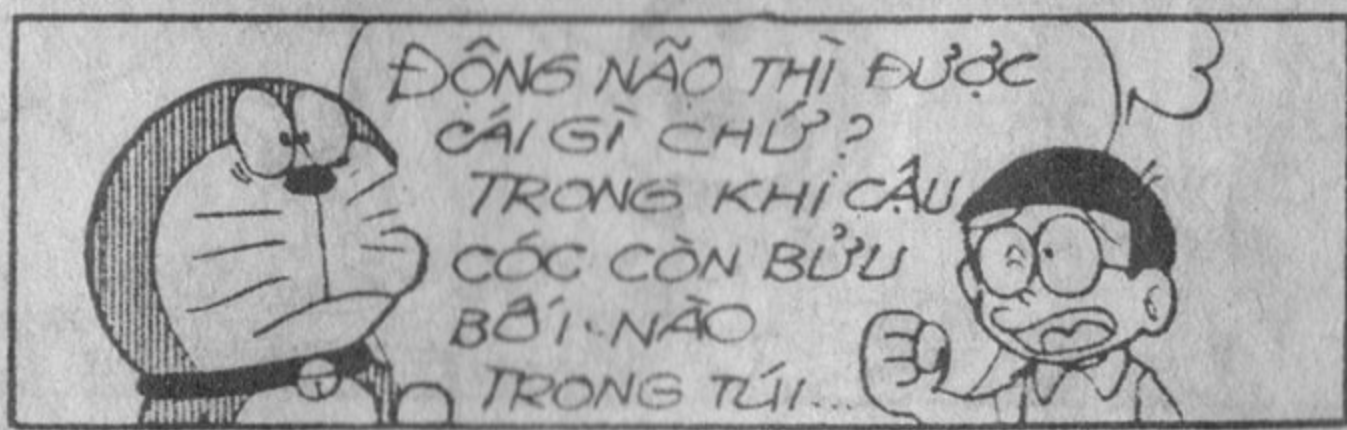 ĐỘNG NÃO THÌ ĐƯỢC
CÁI GÌ CHỨ?
TRONG KHI CẬU
CÓC CÒN BỬU
BỐI..NÀO
TRONG TÚI...